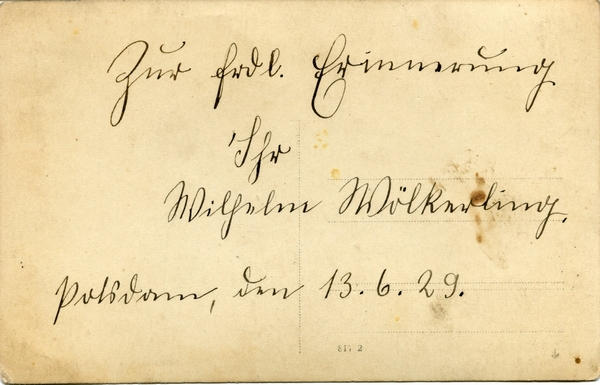 Zur frdl. Erinnerung
Ihr
Wilhelm Wölkerling.
Potsdam, den 13.6.29.